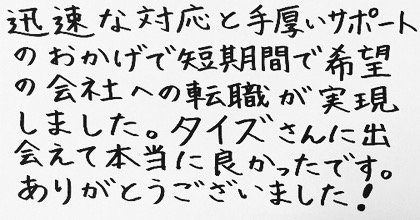 迅速な対応と手厚いサポート
のおかげで短期間で希望
の会社への転職が実現
しました。タイズさんに出
会えて本当に良かったです。
ありがとうございました!